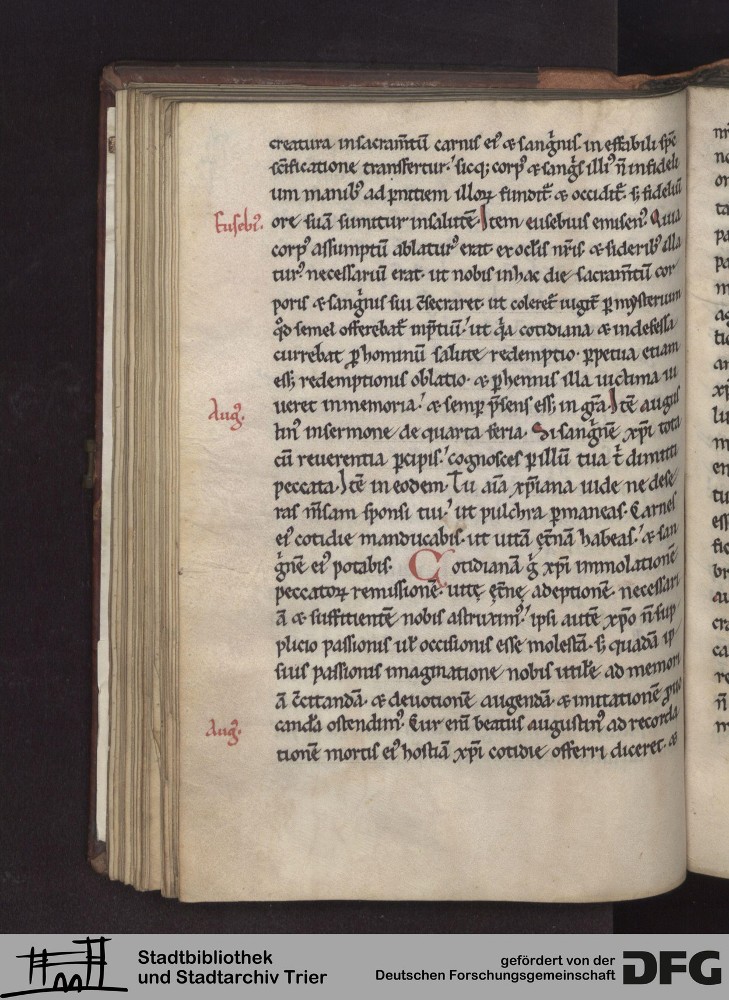 creatura insacram̄tū carnis ei᷒ & sang̾nis. in effabili sp̄c
sc̄ificatione transfertur.' sicq; corp᷒ & sang̾s illi᷒ n̄ infideli
um manib᷒ ad p̄nitiem illoꝝ fundit᷑ & occidit᷑. s; fideliū
Eusebi᷒. ore suā sumitur insalutē. Item eusebius emisen᷒. Quia
corp᷒ assumptū ablatur᷒ erat ex oclis nr̄is. & siderib᷒ illa
tur᷒ necessariū erat. ut nobis in hac die sacram̄tū cor
poris & sang̾nis sui c̄secraret. ut coleret᷑ iugit᷑ ꝑ mysterium
q̇d semel offerebat᷑ inp̄tiū.' ut q̾a cotidiana & indefessa
currebat ꝓ hominū salute redemptio. ꝑpetua etiam
ess; redemptionis oblatio. & ꝑhennis illa uictima ui
Aug᷒. ueret in memoria.' & semp̱ p̄sens ess; in gr̄a. Itē augus
tin᷒ in sermone de quarta feria. Si sang̾nē xp̄i tota
cū reuerentia ꝑcipis.' cognosces ꝑ illū tua t᷑ dimitti
peccata. Itē in eodem. Tu aīa xp̄iana uide ne dese
ras m̄sam sponsi tui.' ut pulchra ꝑmaneas. Carnes
ei᷒ cotidie manducabis. ut uitā ęt̄nā habeas.' & san
g̾nē ei᷒ potabis. Cotidianā g̊ xp̄i immolationē
peccatoꝝ remissionē. uitę ęt̄nę adeptionē. necessari
ā & suffitientē nobis astruxim᷒.' ipsi autē xp̄o n̄ sup
plicio passionis uł occisionis esse molestā. s; quadā ip
sius passionis imaginatione nobis utilē ad memori
ā c̄citandā. & deuotionē augendā. & imitationē ꝓuo
Aug᷒. candā ostendim᷒. Cur eni beatus augustin᷒ ad recorda
tionē mortis ei᷒ hostiā xp̄i cotidie offerri diceret. &
Stadtbibliothek
und Stadtarchiv Trier
gefördert von der
Deutschen Forschungsgemeinschaft
DFG